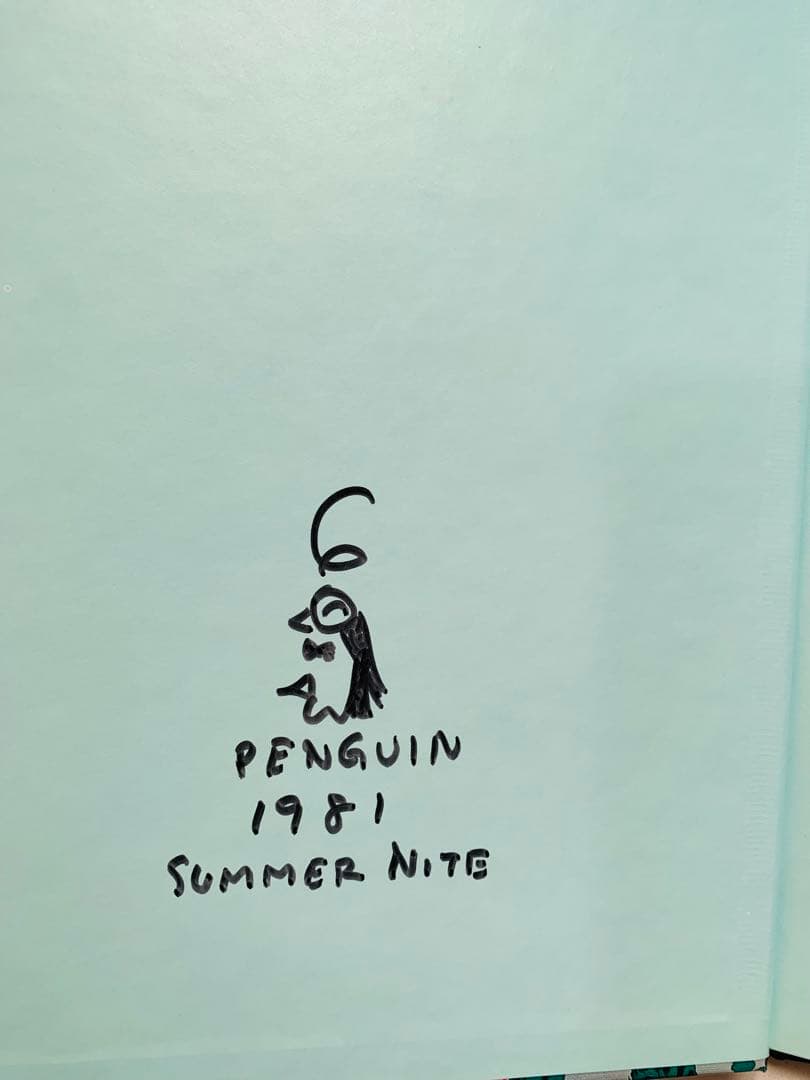 PENGUIN
1981
SUMMER NITE